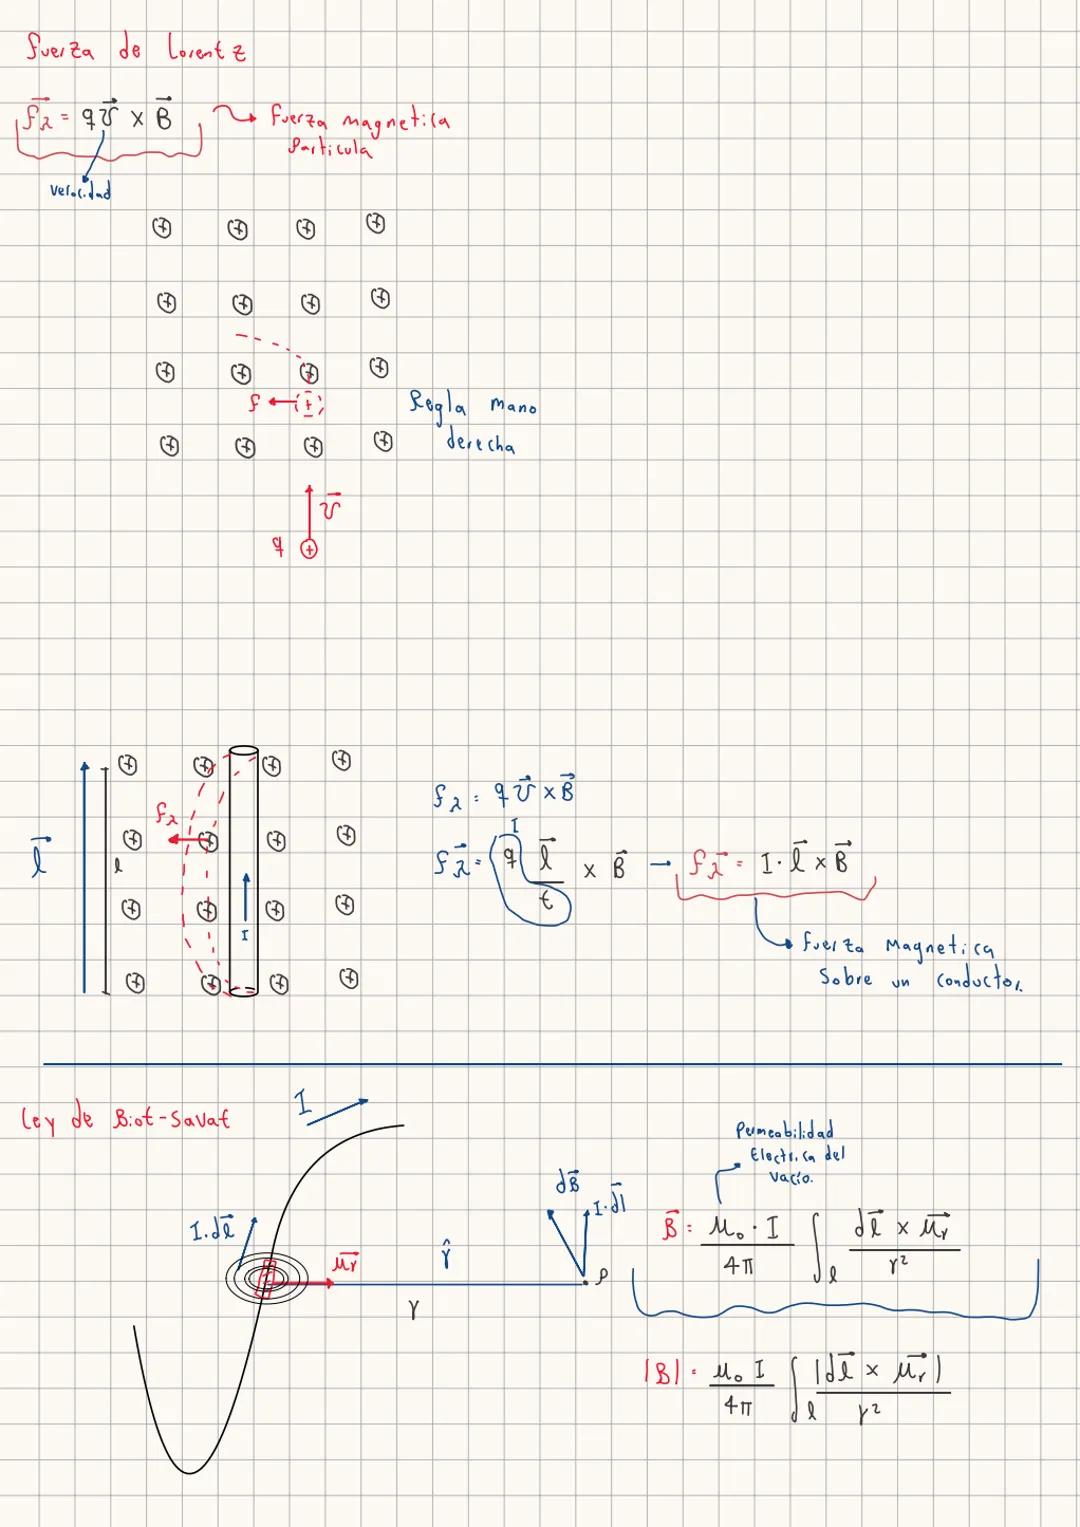 Fuerza de Lorentz
F⃗λ = q v⃗ × B⃗
Fuerza magnetica
Particula
Velocidad
F
Regla mano
derecha
v⃗
q
l⃗
l
Fλ
I
Fλ = q v⃗ × B⃗
I
F⃗λ = q l⃗ / t × B⃗ → F⃗λ = I · l⃗ × B⃗
Fuerza Magnetica
Sobre un conductor.
Ley de Biot-Savat
I
Permeabilidad
Electrica del
Vacío.
dB⃗
I·dl⃗
I·dl⃗
μ⃗r
r̂
r
P
B⃗ = μ₀ · I / 4π ∫l dl⃗ × μ⃗r / r²
|B| = μ₀ I / 4π ∫l |dl⃗ × μ⃗r| / r²